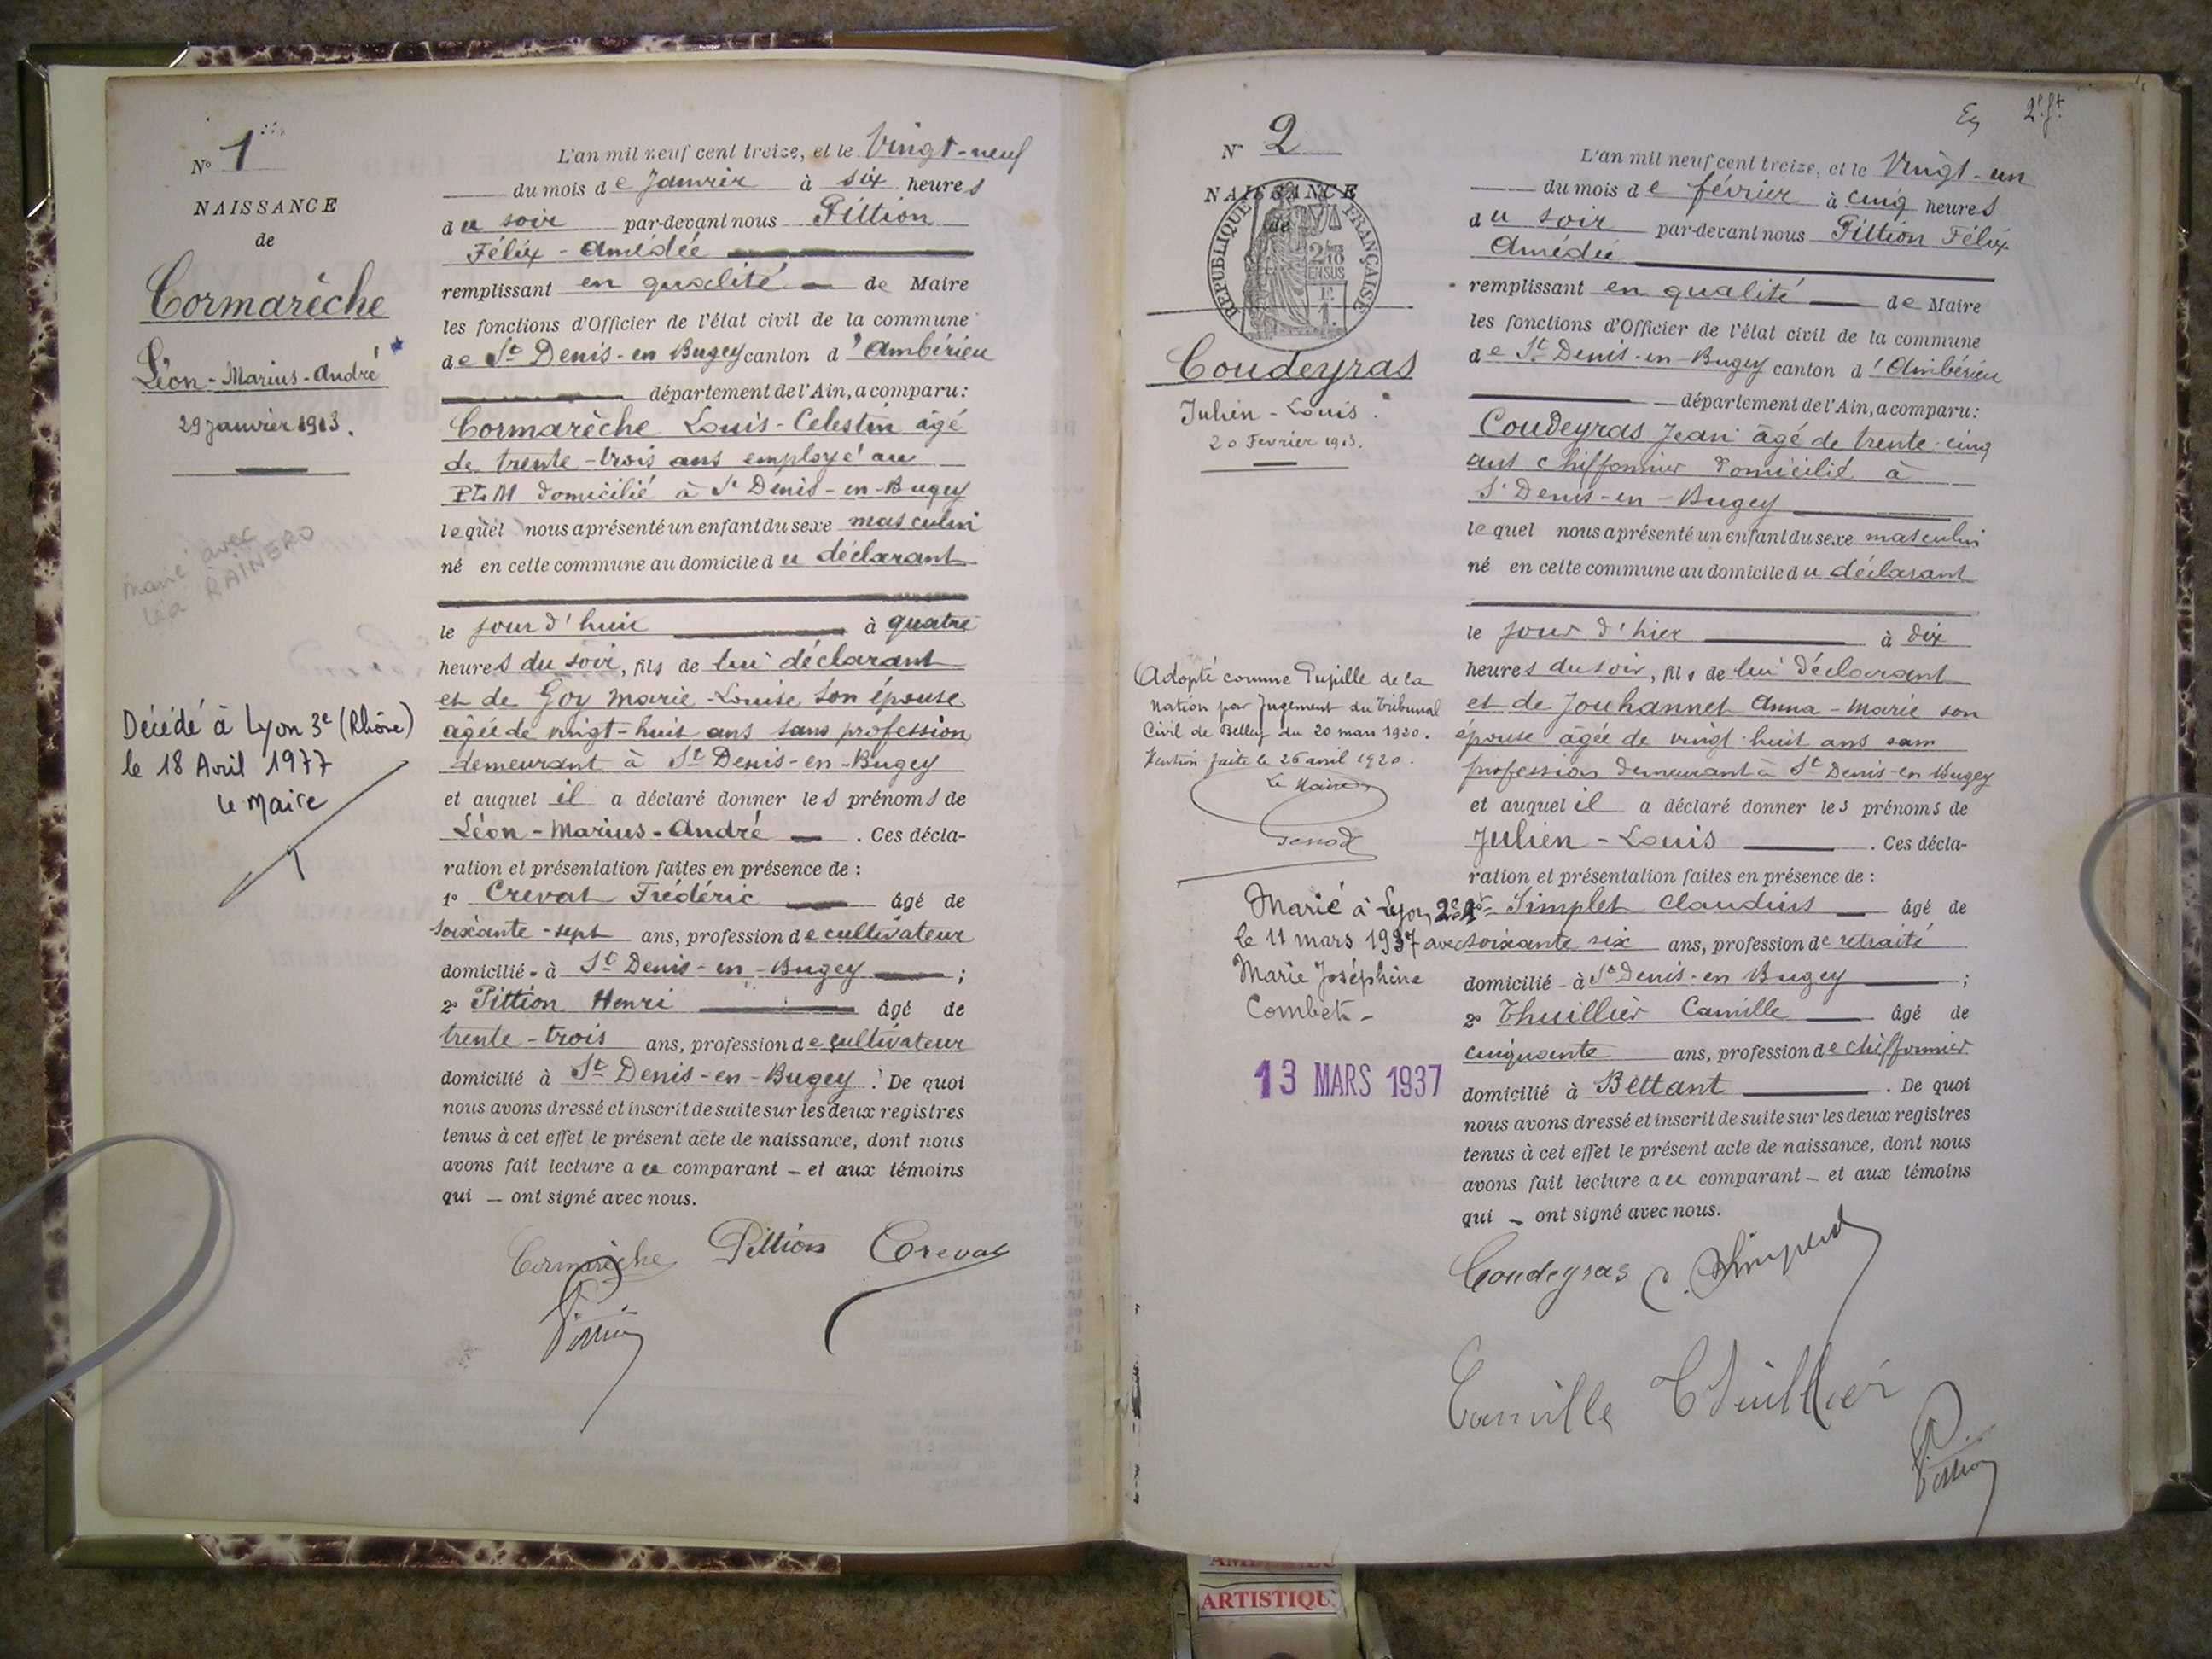 N° 1
NAISSANCE
de
Cormarèche
Léon-Marius-André
29 Janvier 1913.
marié avec
Léa RAINERO
Décédé à Lyon 3e (Rhône)
le 18 Avril 1977
Le Maire
L'an mil neuf cent treize, et le Vingt-neuf
du mois de Janvier à six heures
du soir par-devant nous Pittion
Félix-Amédée
remplissant en qualité de Maire
les fonctions d'Officier de l'état civil de la commune
de St Denis-en Bugey canton d'Ambérieu
département de l'Ain, a comparu:
Cormarèche Louis-Celestin âgé
de trente-trois ans employé au
PLM domicilié à St Denis-en-Bugey
lequel nous a présenté un enfant du sexe masculin
né en cette commune au domicile du déclarant
le jour d'hui à quatre
heures du soir, fils de lui déclarant
et de Goy Marie-Louise son épouse
âgée de vingt-huit ans sans profession
demeurant à St Denis-en-Bugey
et auquel il a déclaré donner les prénoms de
Léon-Marius-André . Ces décla-
ration et présentation faites en présence de :
1° Crevat Frédéric âgé de
soixante-sept ans, profession de cultivateur
domicilié à St Denis-en-Bugey ;
2° Pittion Henri âgé de
trente-trois ans, profession de cultivateur
domicilié à St Denis-en-Bugey . De quoi
nous avons dressé et inscrit de suite sur les deux registres
tenus à cet effet le présent acte de naissance, dont nous
avons fait lecture au comparant et aux témoins
qui ont signé avec nous.
Cormarèche Pittion Crevat
Pittion
2e ft
N° 2
NAISSANCE
de
RÉPUBLIQUE FRANÇAISE
2/10
EN SUS
Coudeyras
Julien-Louis.
20 Fevrier 1913.
Adopté comme Pupille de la
Nation par Jugement du Tribunal
Civil de Belley du 20 mars 1920.
Mention faite le 26 avril 1920.
Le Maire
Marié à Lyon 2e
le 11 mars 1937 avec
Marie Joséphine
Combet-
13 MARS 1937
L'an mil neuf cent treize, et le Vingt-un
du mois de février à cinq heures
du soir par-devant nous Pittion Félix
Amédée
remplissant en qualité de Maire
les fonctions d'Officier de l'état civil de la commune
de St Denis-en-Bugey canton d'Ambérieu
département de l'Ain, a comparu:
Coudeyras Jean âgé de trente-cinq
ans chiffonnier domicilié à
St Denis-en-Bugey
lequel nous a présenté un enfant du sexe masculin
né en cette commune au domicile du déclarant
le jour d'hier à dix
heures du soir, fils de lui déclarant
et de Jouhannet Anna-Marie son
épouse âgée de vingt-huit ans sans
profession demeurant à St Denis-en Bugey
et auquel il a déclaré donner les prénoms de
Julien-Louis . Ces décla-
ration et présentation faites en présence de :
1° Simplet Claudius âgé de
soixante six ans, profession de retraité
domicilié à St Denis-en Bugey ;
2° Thuillier Camille âgé de
cinquante ans, profession de chiffonnier
domicilié à Bettant . De quoi
nous avons dressé et inscrit de suite sur les deux registres
tenus à cet effet le présent acte de naissance, dont nous
avons fait lecture au comparant et aux témoins
qui ont signé avec nous.
Coudeyras C. Simplet
Camille Thuillier
Pittion
ARTISTIQU